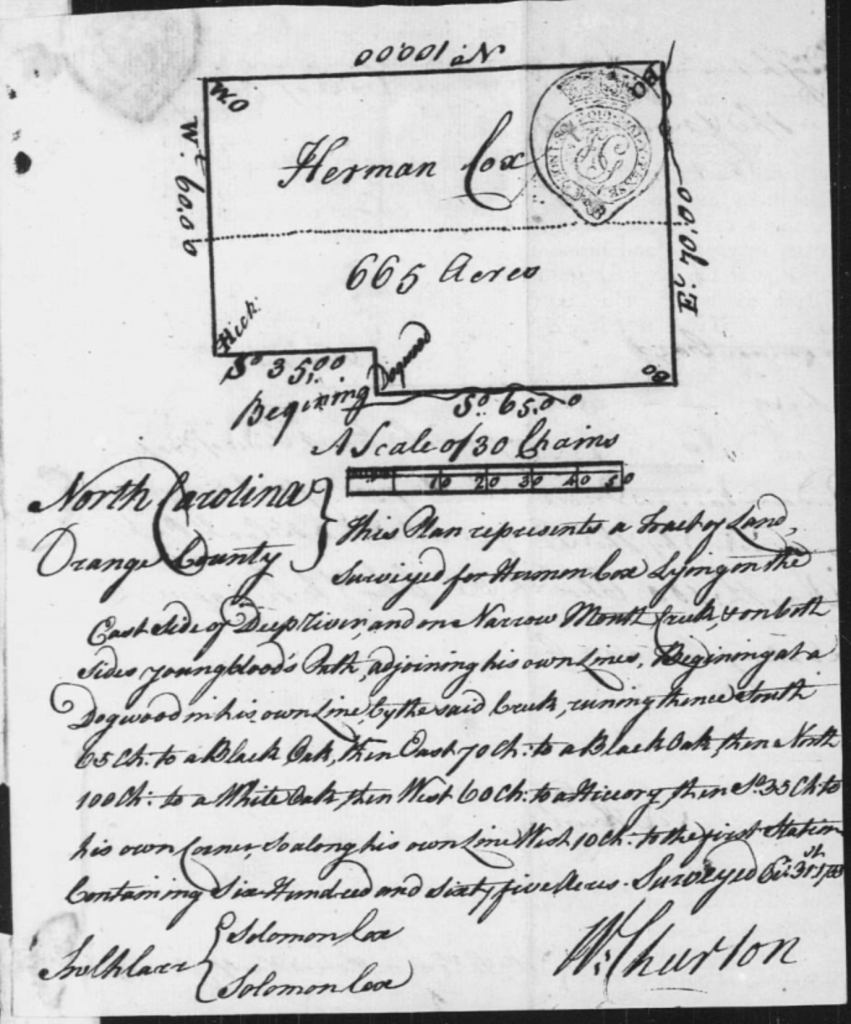 No. 100.00
W.O
BO
Herman Cox
Wt. 60.00
665 Acres
E. 70.00
Hick.
So 35.00
Begining Dogwood
Bo
So. 65.00
A Scale of 30 Chains
10 20 30 40 50
North Carolina }
Orange County
This Plan represents a Tract of Land,
Surveyed for Hermon Cox Lying on the
East Side of Deep River, and on Narrow Mouth Creek, & on both
Sides youngblood's Path, adjoining his own Lines, Begining at a
Dogwood in his own Line, by the said Creek, runing thence South
65 Ch: to a Black Oak, then East 70 Ch: to a Black Oak, then North
100 Ch: to a White Oak, then West 60 Ch: to a Hiccory, then So. 35 Ch to
his own Corner, So along his own Line West 10 Ch: to the first Station
Containing Six Hundred and Sixty five Acres. Surveyed 31st
{ Solomon Cox
Solomon Cox
Wm. Churton